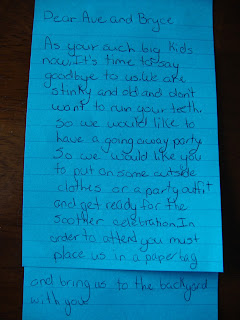 Dear Ave and Bryce
As your auch big kids
now. It's time to say
goodbye to us. We are
stinky and old and dont
want to ruin your teeth.
So we would like to
have a going away party
So we would like you
to put on some outside
clothes or a party outfit
and get ready for the
Soother celebration. In
order to attend you must
place us in a paper bag
and bring us to the backyard
with your